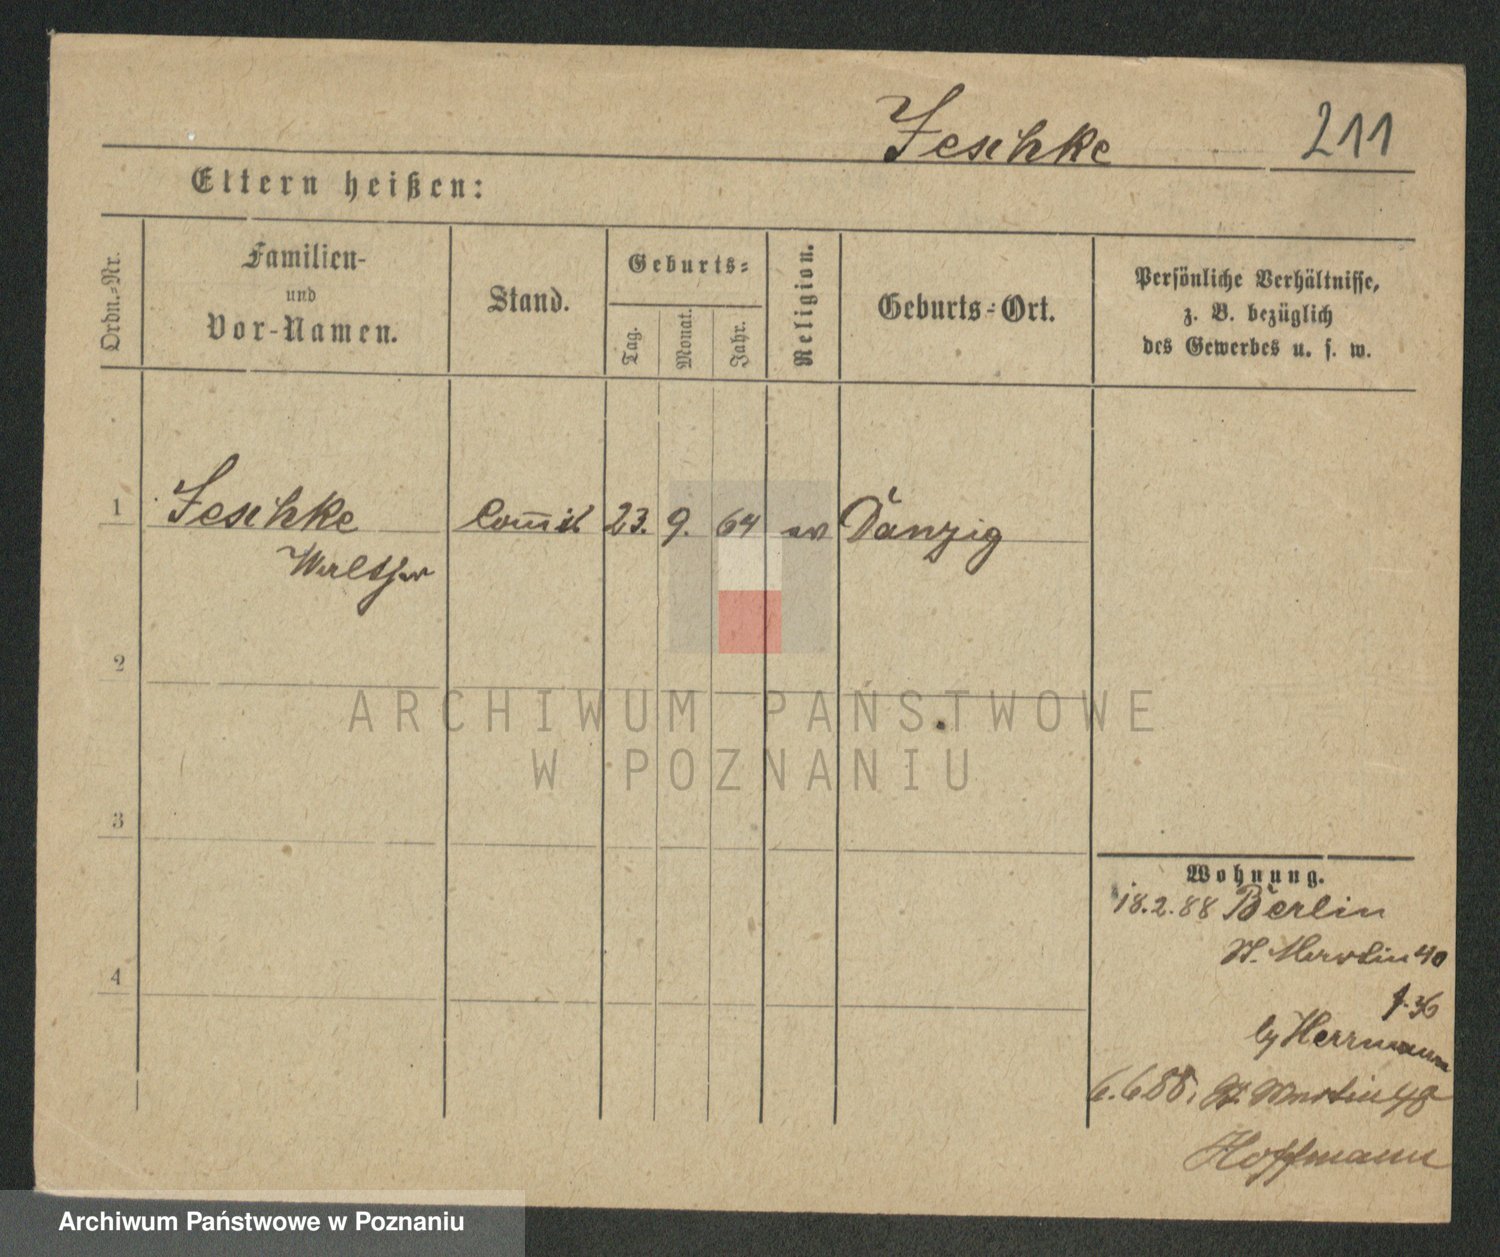 Jeschke 211
Eltern heißen:
Ordn.-Nr.
Familien-
und
Vor-Namen.
Stand.
Geburts-
Tag.
Monat.
Jahr.
Religion.
Geburts-Ort.
Persönliche Verhältnisse,
z. B. bezüglich
des Gewerbes u. s. w.
1 Jeschke Com̅is 23. 9. 64 ev Danzig
Walther
2
ARCHIWUM PAŃSTWOWE
W POZNANIU
3
Wohnung.
18.2.88 Berlin
St. Martin 40
4
Herrmann
6.6.88. St. Martin 48
Hoffmann
Archiwum Państwowe w Poznaniu